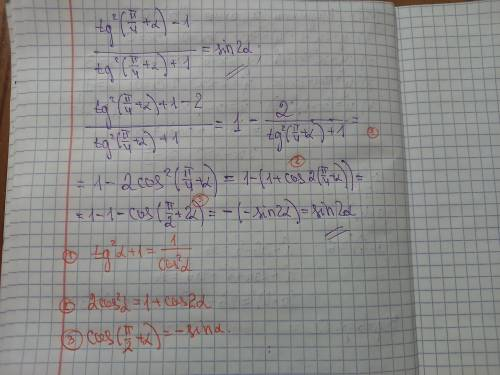 (tg²(π/4+α)-1)/(tg²(π/4+α)+1) = sin2α
(tg²(π/4+α)+1-2)/(tg²(π/4+α)+1) = 1 - 2/(tg²(π/4+α)+1) = ①
= 1-2cos²(π/4+α) = ② 1-(1+cos2(π/4+α)) =
= 1-1-cos(π/2+2α) ③ = -(-sin2α) = sin2α
① tg²α+1 = 1/cos²α
② 2cos²α = 1+cos2α
③ cos(π/2+α) = -sinα.